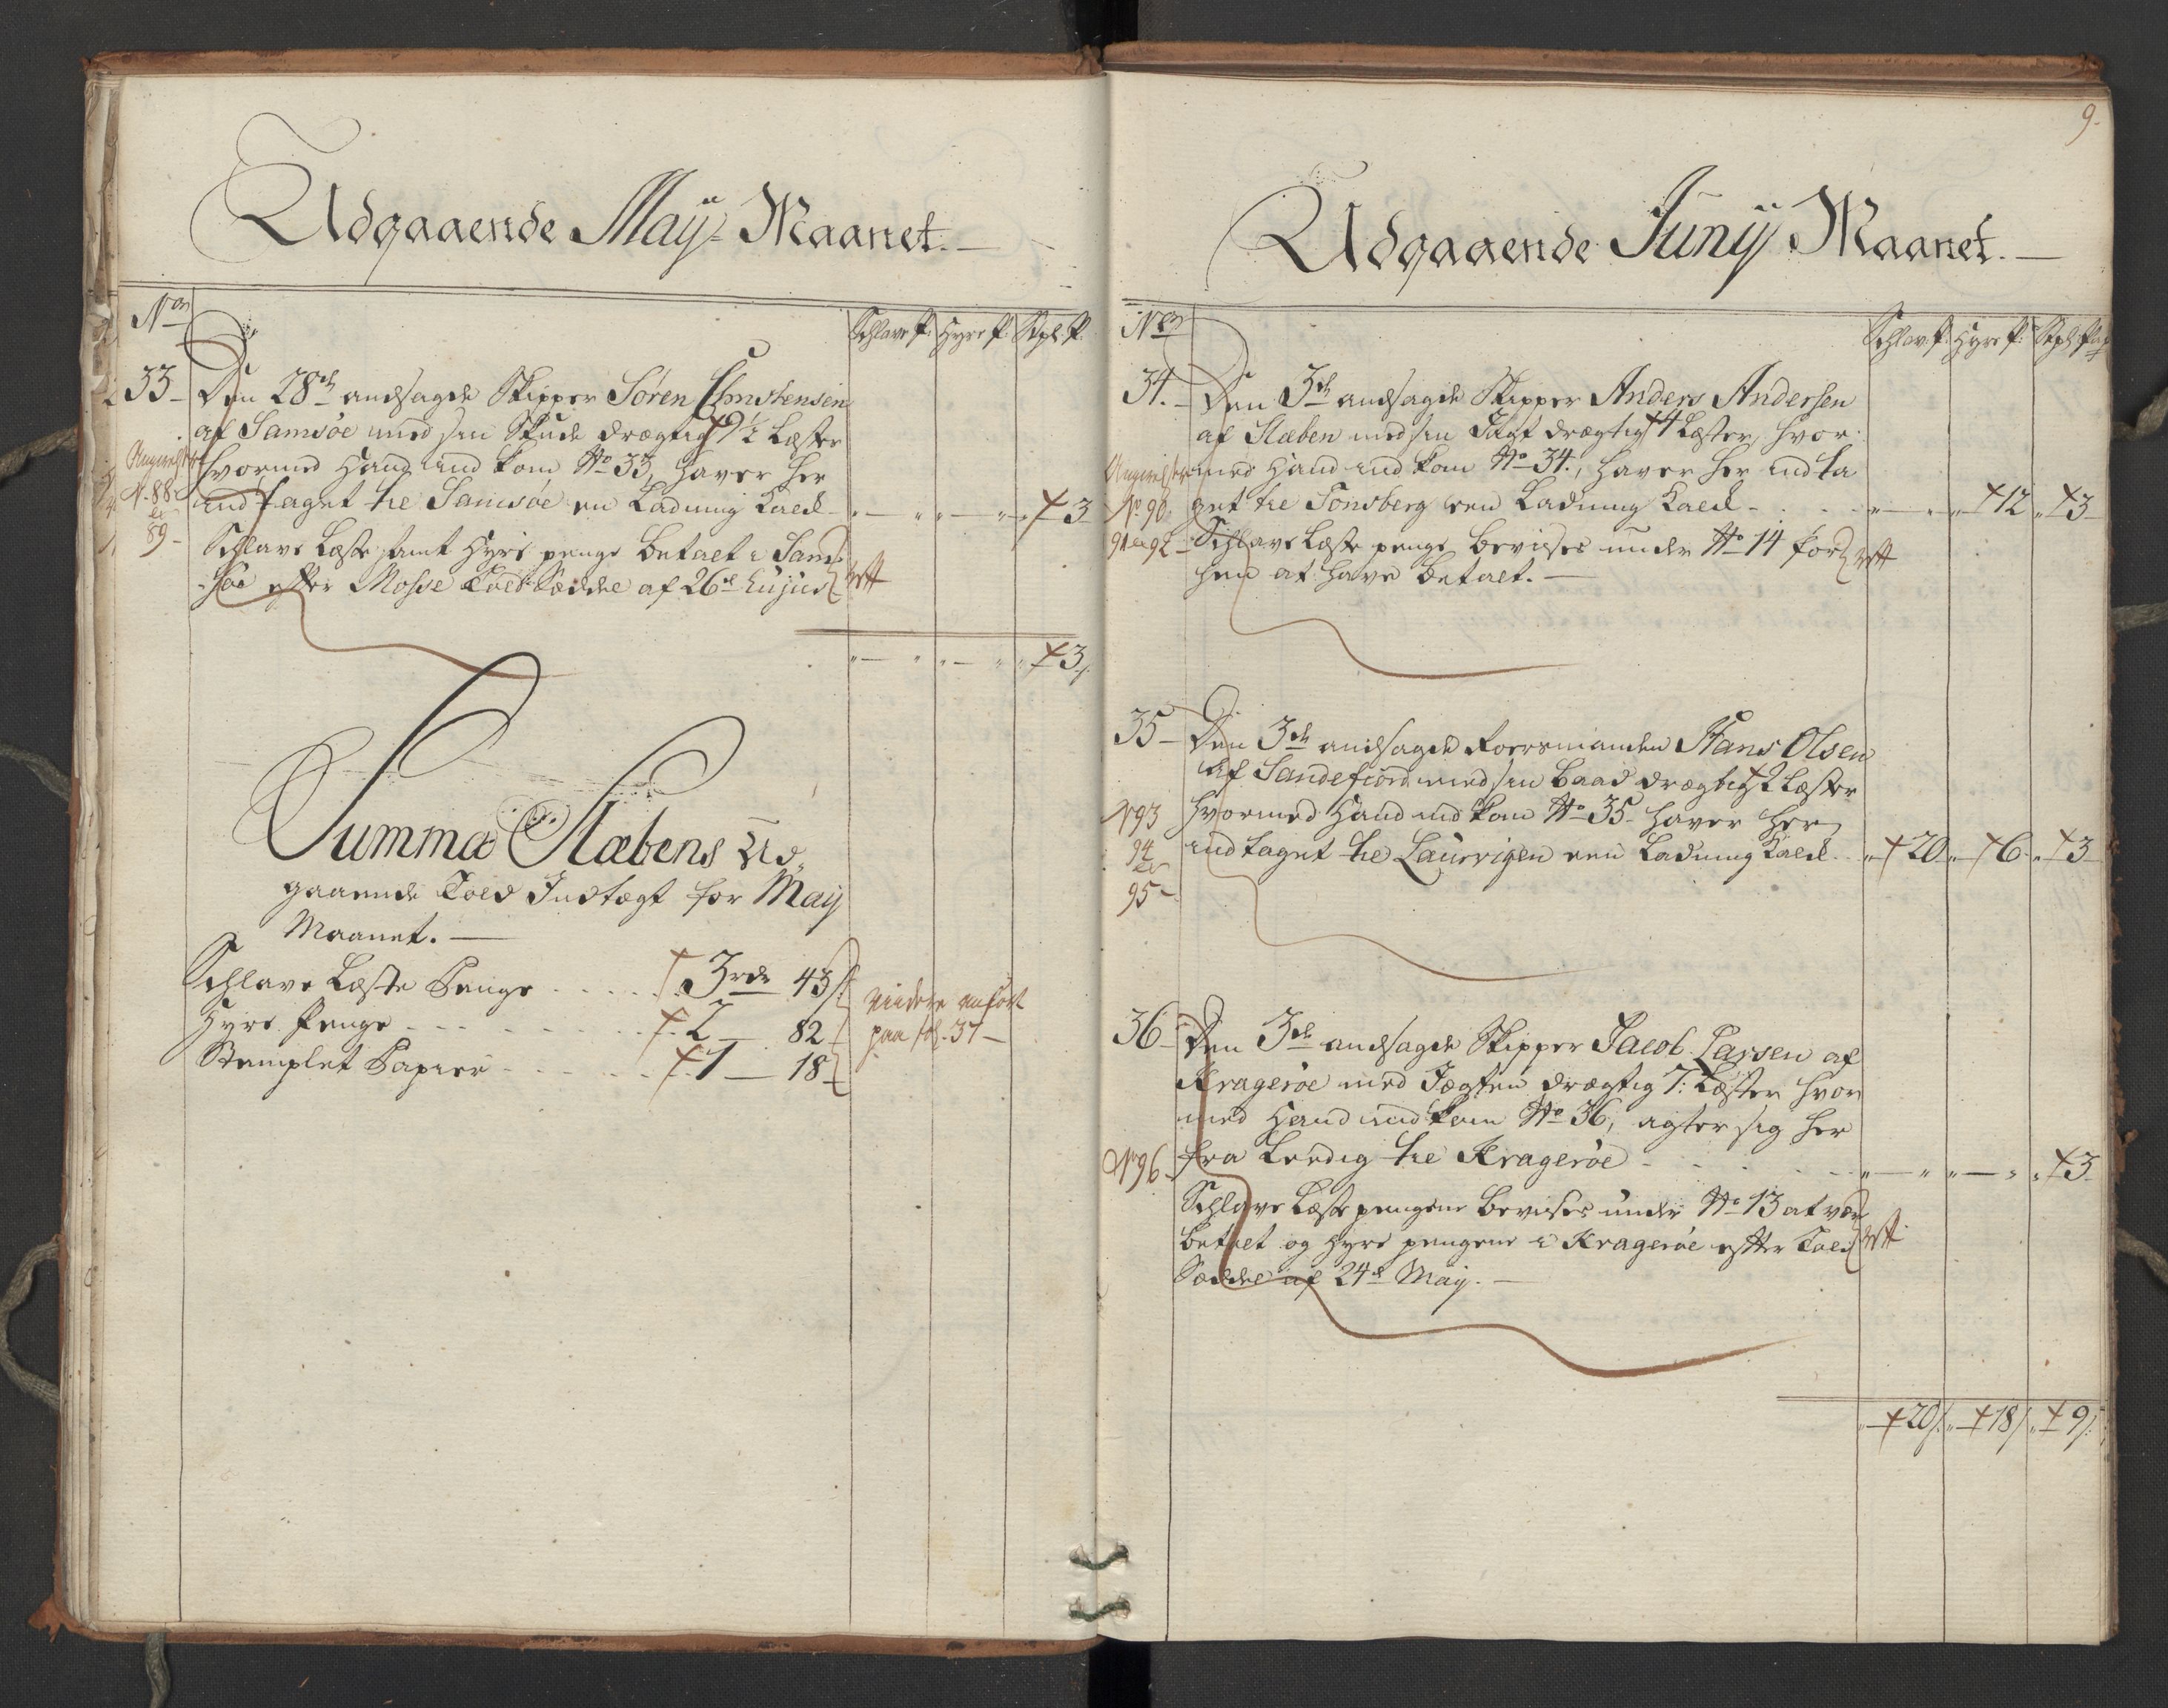 Udgaaende Maÿ Maanet.
Nom
Schlave P: Hyre P: Stpl: P:
33 Den 28de andsagde Skipper Søren Christensen
af Samsøe med sin Skude drægtig 9½ Læster
hvormed Hand ind kom No 33, haver her
indtaget til Samsøe en Ladning Trælast 3
N. 88 et 89
Schlave Læste samt Hyre penge betalt i Sam-
søe efter Mosse Told Sæddel af 26de hujus rgtt
3
Summa Slæbens Ud-
gaaende Told Indtægt for Maÿ
Maanet.
Schlave Læste Penge 3 rdr 43 s
Hyre Penge 2 82
Stemplet Papier 1 18
videre anført
paa fol. 37
9.
Udgaaende Junÿ Maanet.
Nom
Schlav. P: Hyre P: Stpl: Pap
34. Den 3de andsagde Skipper Anders Andersen
af Slæben med sin Jagt drægtig 4 Læster, hvor-
med Hand ind kom No 34., haver her indta
get til Tønsberg en Ladning 12 3
No 90
91 et 92
Schlave Læste penge bevises under No 14 for
hen at have betalt.
35 Den 3de andsagde Foersmanden Hans Olsen
af Sandefiord med sin Baad drægtig 2 Læster
hvormed Hand ind kom No 35 haver her
indtaget til Laurvigen een Ladning 20 6 3
N 93
94
et
95
36 Den 3de andsagde Skipper Jacob Larsen af
Kragerøe med Jægten drægtig 7: Læster hvor
med Hand ind kom No 36, agter sig her
fra Leedig til Kragerøe 3
No 96
Schlave Læste pengene bevises under No 13 at være
betalt og Hyre pengene i Kragerøe efter Told
Sæddel af 24de Maÿ.
20 18 9